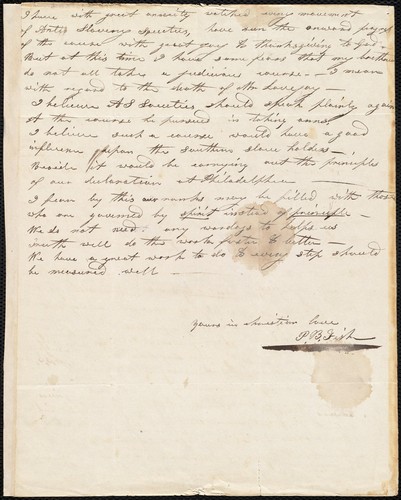 I have with great anxiety watched every movement
of Anti Slavery Societies, have seen the onward progress
of the cause with great joy & thanksgiving to God -
But at this time I have some fears that my brethren
do not all take a judicious course - I mean
with regard to the death of Mr Lovejoy -
I believe A S Societies, should speak plainly again
at the course he pursued in taking arms
I believe such a course would have a good
influence upon the Southern slave holders -
Beside it would be carrying out the principles
of our declaration at Philadelphia
I fear by this our ranks may be filled with those
who are governed by spirit instead of principle -
We do not need any to help us
truth will do this work faster & better -
We have a great work to do & every step should
be measured well -
Yours in christian love
P. B. Fish